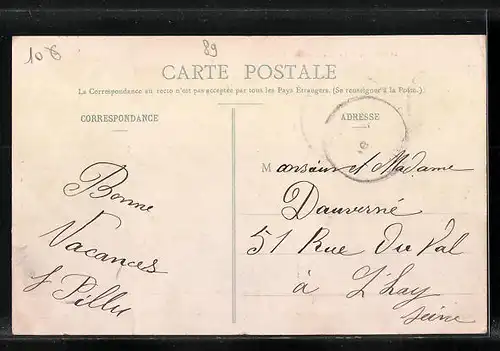 10 6
89
CARTE POSTALE
La Correspondance au recto n'est pas acceptée par tous les Pays Étrangers. (Se renseigner à la Poste.)
CORRESPONDANCE
ADRESSE
Bonne
Vacances
Monsieur et Madame
Dauverné
51 Rue Du Val
à L'Hay
Seine